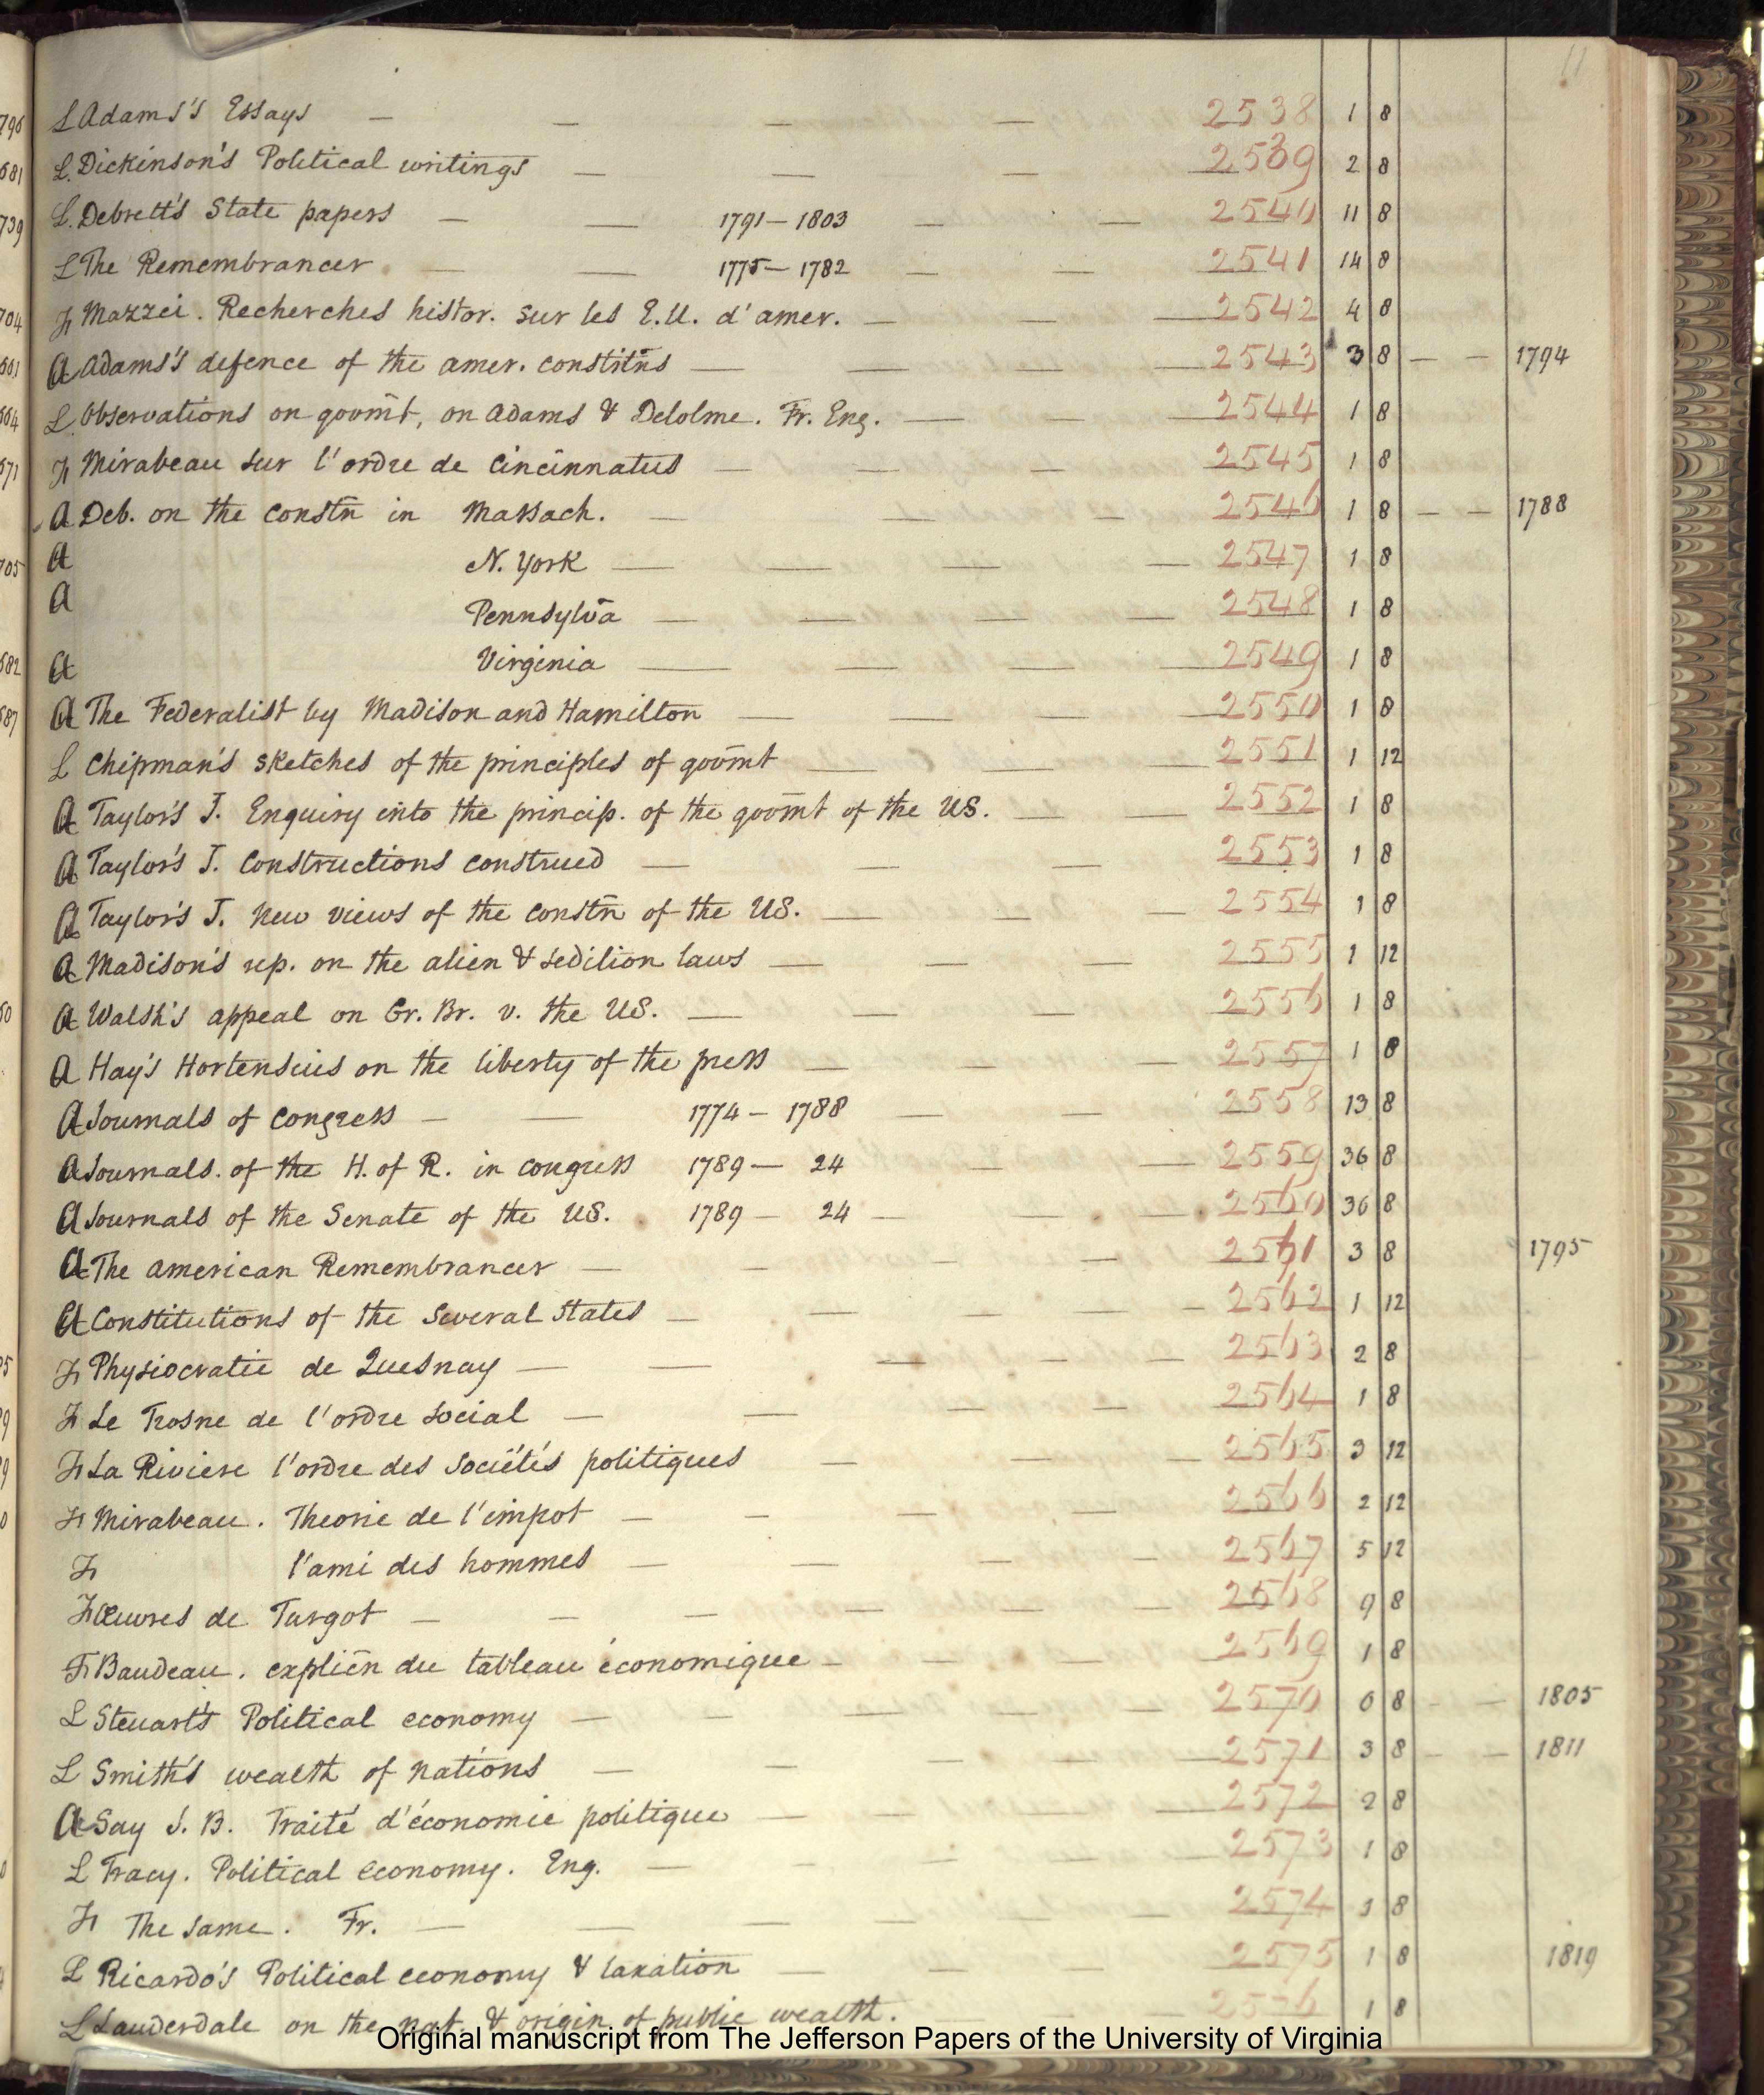 11
L Adams's Essays — — — — 2538 1 8
L. Dickinson's Political writings — — — 2539 2 8
L. Debrett's State papers — — 1791 — 1803 — — 2540 11 8
L The Remembrancer — — 1775 — 1782 — — 2541 14 8
Fr Mazzei. Recherches histor. sur les E.U. d'amer. — — — 2542 4 8
A Adams's defence of the amer. constitñs — — — — 2543 3 8 — — 1794
L Observations on govm̃t, on Adams & Delolme. Fr. Eng. — — — 2544 1 8
Fr Mirabeau sur l'ordre de Cincinnatus — — — — 2545 1 8
A Deb. on the constñ in Massach. — — — 2546 1 8 — — 1788
A N. York — — — — 2547 1 8
A Pennsylvã — — — — 2548 1 8
A Virginia — — — — 2549 1 8
A The Federalist by Madison and Hamilton — — — — 2550 1 8
L Chipman's sketches of the principles of govm̃t — — — 2551 1 12
A Taylor's J. Enquiry into the princip. of the govm̃t of the US. — — 2552 1 8
A Taylor's J. Constructions construed — — — 2553 1 8
A Taylor's J. New views of the constñ of the US. — — — 2554 1 8
A Madison's rep. on the alien & sedition laws — — — 2555 1 12
A Walsh's appeal on Gr. Br. v. the US. — — — 2556 1 8
A Hay's Hortensius on the liberty of the press — — — 2557 1 8
A Journals of Congress — — 1774 — 1788 — — 2558 13 8
A Journals. of the H. of R. in congress 1789 — 24 — — 2559 36 8
A Journals of the Senate of the US. 1789 — 24 — — — 2560 36 8
A The American Remembrancer — — — — 2561 3 8 1795
A Constitutions of the several states — — — — — 2562 1 12
Fr Physiocratie de Quesnay — — — — — 2563 2 8
Fr Le Trosne de l'ordre social — — — — 2564 1 8
Fr La Riviere l'ordre des Sociétés politiques — — — 2565 3 12
Fr Mirabeau. Theorie de l'impot — — — — 2566 2 12
Fr l'ami des hommes — — — — 2567 5 12
Fr Œuvres de Turgot — — — — — — 2568 9 8
Fr Baudeau. expliçn du tableau économique — — — — 2569 1 8
L Steuart's Political economy — — — — — 2570 6 8 — — 1805
L Smith's wealth of nations — — — — 2571 3 8 — — 1811
A Say J. B. Traité d'économie politique — — — — 2572 2 8
L Tracy. Political economy. Eng. — — — — 2573 1 8
Fr The same. Fr. — — — — — 2574 1 8
L Ricardo's Political economy & taxation — — — 2575 1 8 1819
L Lauderdale on the nat. & origin of public wealth. 2576 1 8
Original manuscript from The Jefferson Papers of the University of Virginia